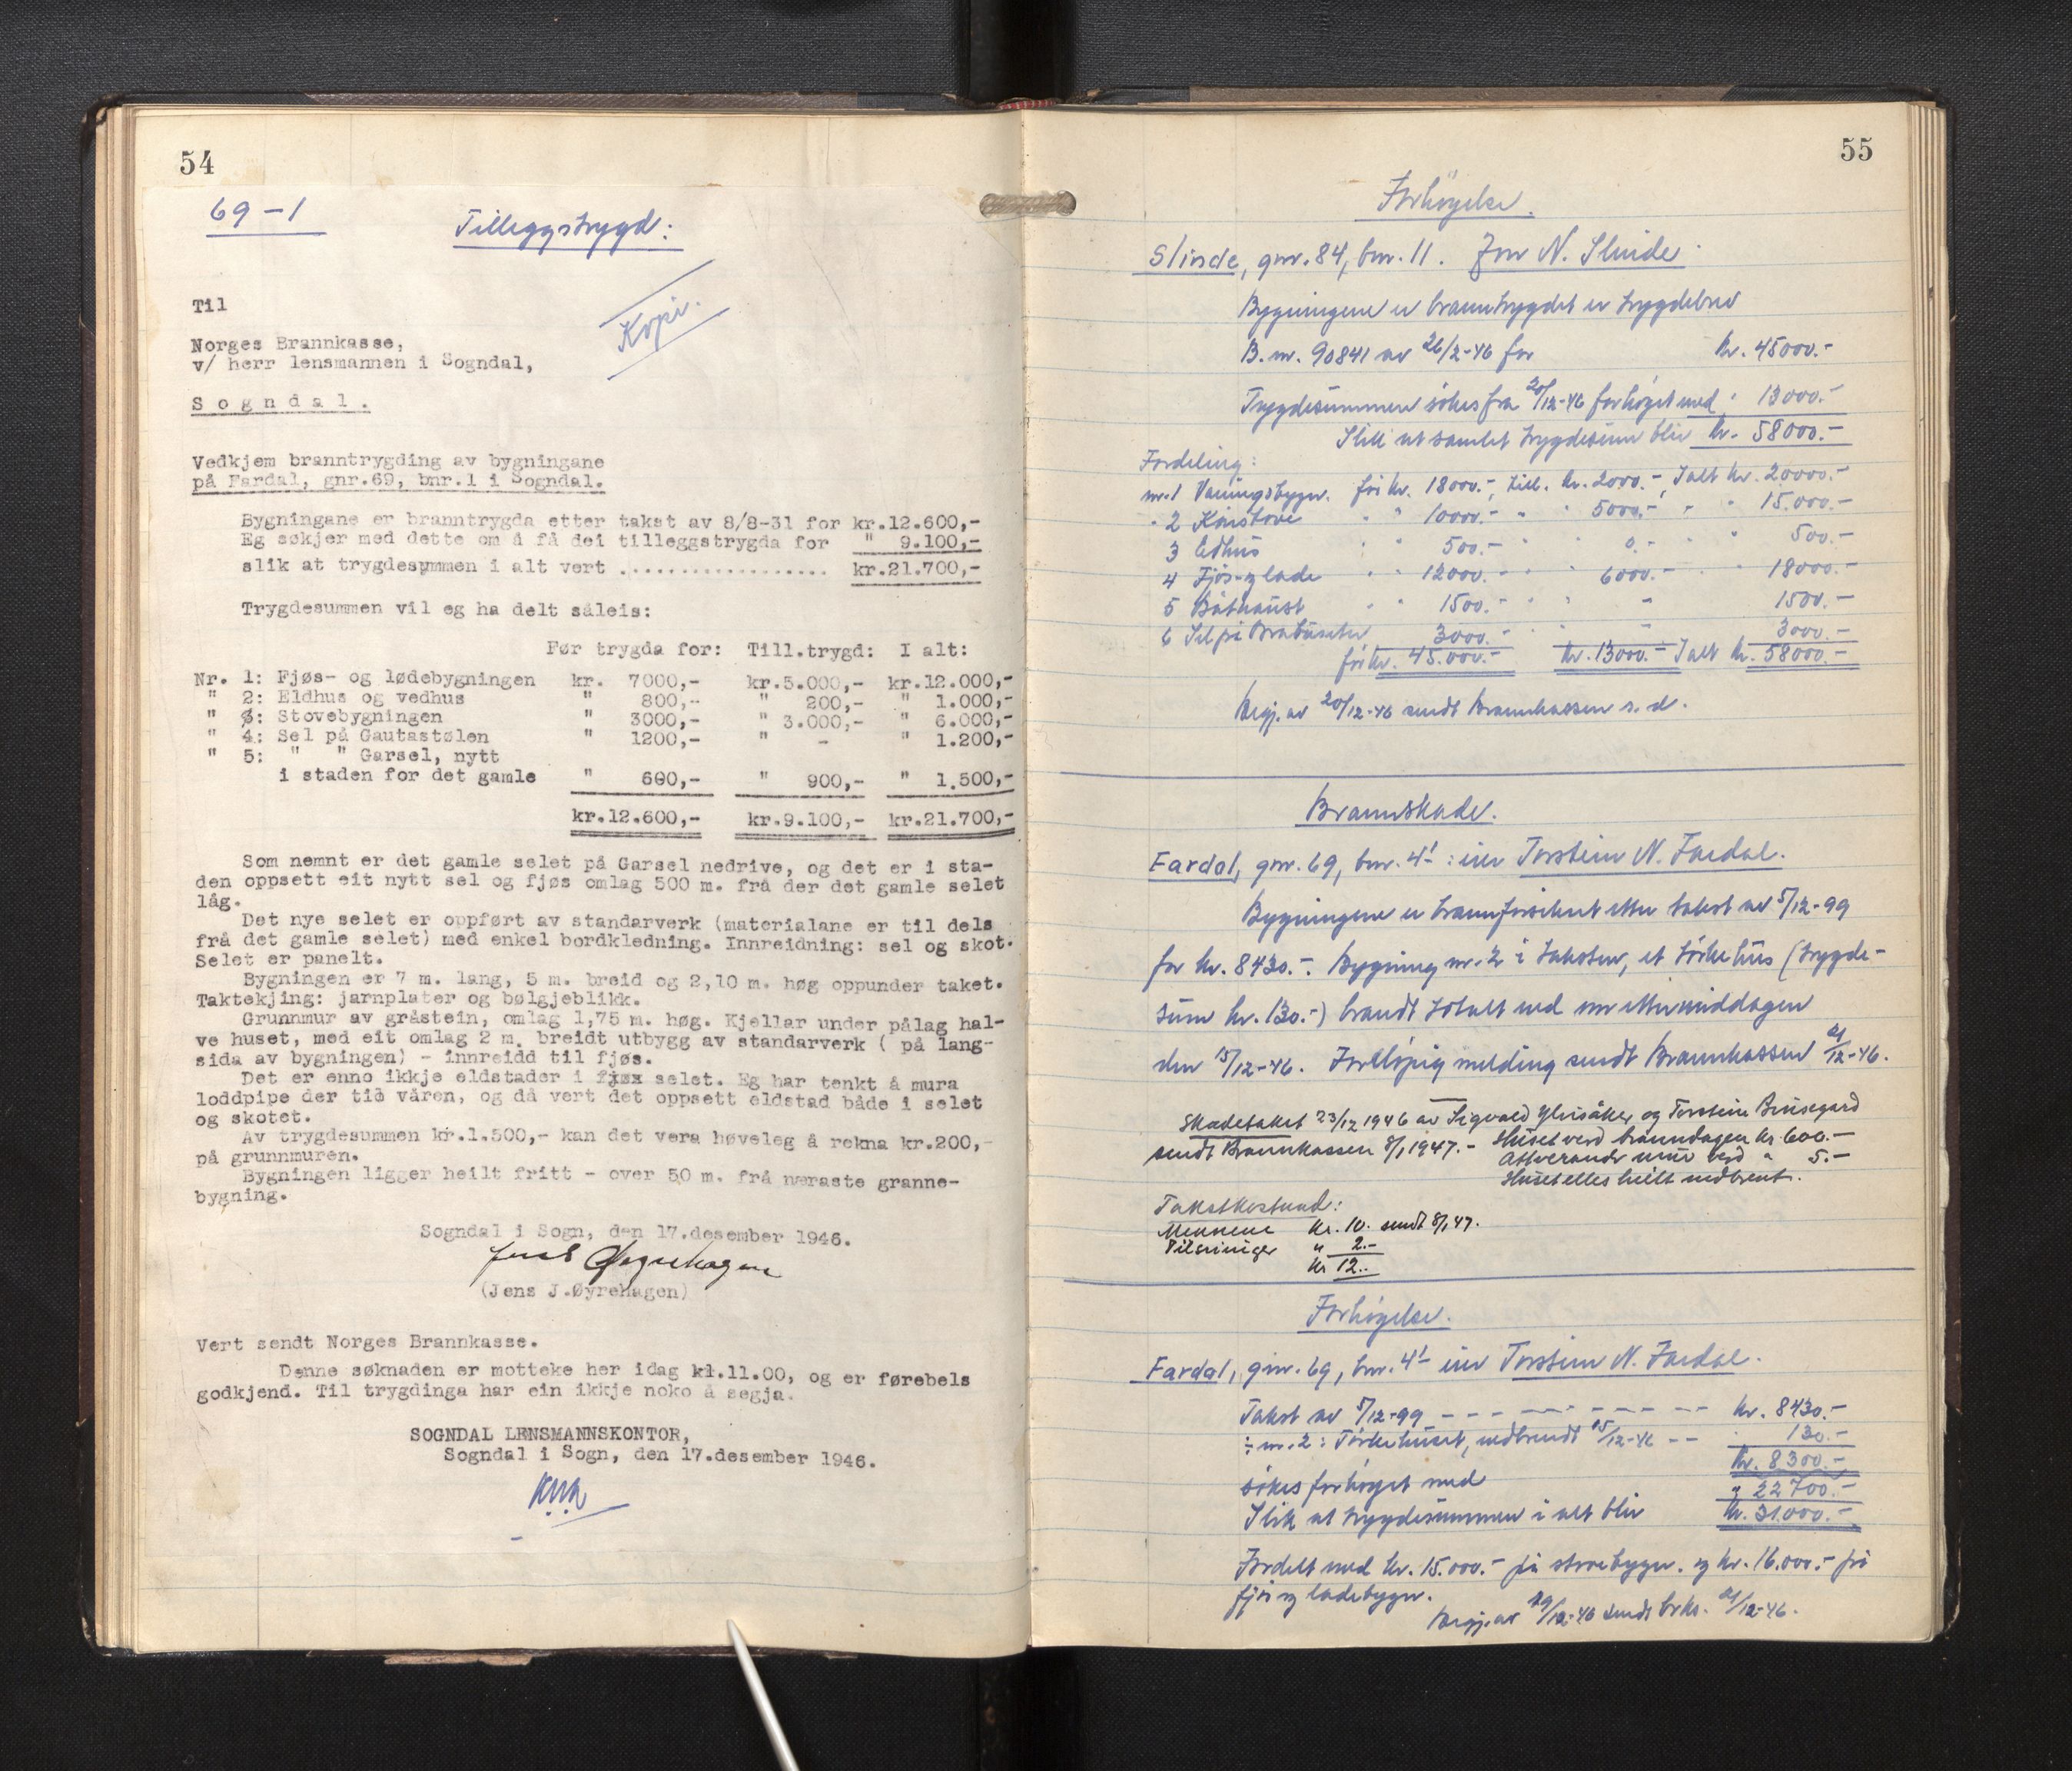 54
69-1
Tilleggstrygd:
Kopi.
Til
Norges Brannkasse,
v/ herr lensmannen i Sogndal,
Sogndal.
Vedkjem branntrygding av bygningane
på Fardal, gnr.69, bnr.1 i Sogndal.
Bygningane er branntrygda etter takst av 8/8-31 for kr.12.600,-
Eg søkjer med dette om å få dei tilleggstrygda for " 9.100,-
slik at trygdesummen i alt vert .................. kr.21.700,-
Trygdesummen vil eg ha delt såleis:
Før trygda for: Till.trygd: I alt:
Nr. 1: Fjøs- og lødebygningen kr. 7000,- kr.5.000,- kr.12.000,-
" 2: Eldhus og vedhus " 800,- " 200,- " 1.000,-
" 3: Stovebygningen " 3000,- " 3.000,- " 6.000,-
" 4: Sel på Gautastølen " 1200,- " - " 1.200,-
" 5: " " Garsel, nytt
i staden for det gamle " 600,- " 900,- " 1.500,-
kr.12.600,- kr.9.100,- kr.21.700,-
Som nemnt er det gamle selet på Garsel nedrive, og det er i sta-
den oppsett eit nytt sel og fjøs omlag 500 m. frå der det gamle selet
låg.
Det nye selet er oppført av standarverk (materialane er til dels
frå det gamle selet) med enkel bordkledning. Innreidning: sel og skot.
Selet er panelt.
Bygningen er 7 m. lang, 5 m. breid og 2,10 m. høg oppunder taket.
Taktekjing: jarnplater og bølgjeblikk.
Grunnmur av gråstein, omlag 1,75 m. høg. Kjellar under pålag hal-
ve huset, med eit omlag 2 m. breidt utbygg av standarverk ( på lang-
sida av bygningen) - innreidd til fjøs.
Det er enno ikkje eldstader i fjøs selet. Eg har tenkt å mura
loddpipe der tid våren, og då vert det oppsett eldstad både i selet
og skotet.
Av trygdesummen kr.1.500,- kan det vera høveleg å rekna kr.200,-
på grunnmuren.
Bygningen ligger heilt fritt - over 50 m. frå næraste granne-
bygning.
Sogndal i Sogn, den 17.desember 1946.
Jens Øyrehagen
(Jens J.Øyrehagen)
Vert sendt Norges Brannkasse.
Denne søknaden er motteke her idag kl.11.00, og er førebels
godkjend. Til trygdinga har ein ikkje noko å segja.
SOGNDAL LENSMANNSKONTOR,
Sogndal i Sogn, den 17.desember 1946.
55
Forhøyelse.
Slinde, gnr. 84, bnr. 11. Jon N. Slinde.
Bygningene er branntrygdet er trygdebrev
B. nr. 90841 av 26/2-46 for kr. 45000.-
Trygdesummen søkes fra 20/12-46 forhøyet med " 13000.-
Slik at samlet trygdesum blir kr. 58000.-
Fordeling:
nr. 1 Våningsbygn. før kr. 18000.-, till. kr. 2000.-, Ialt kr. 20000.-
" 2 Kårstove " " 10000.- " " 5000.- " " 15.000.-
3 Eldhus " " 500.- " " 0.- " " 500.-
4 Fjøs- og lade " " 12000.- " " 6000.- " " 18000.-
5 Båtnaust " " 1500.- " " " 1500.-
6 Sel på 3000.- " " 3000.-
før kr. 45.000.- kr. 13000.- Ialt kr. 58000.-
Begj. av 20/12-46 sendt Brannkassen s. d.
Brannskade.
Fardal, gnr. 69, bnr. 4, eier Torstein N. Fardal.
Bygningene er brannforsikret etter takst av 5/12-99
for kr. 8430.-. Bygning nr. 2 i taksten, et tørkehus (trygde-
sum kr. 130.-) brandt totalt ned om ettermiddagen
den 15/12-46. Foreløpig melding sendt Brannkassen 21/12-46.
Skadetakst 23/12 1946 av Sigvald Ylvisåker og Torstein Brusegard
sendt Brannkassen 8/1 1947.- Huset verd branndagen kr. 600.-
Attverande mur verd " 5.-
Huset elles heilt nedbrent.
Takstkostnad:
Mennene kr. 10. sendt 8/1 47.
Tilsvininger " 2.-
kr 12..
Forhøyelse.
Fardal, gnr. 69, bnr. 4, eier Torstein N. Fardal.
Takst av 5/12-99 - - - - - - - - - kr. 8430.-
÷ nr. 2: Tørkehuset, nedbrendt 15/12-46 - - " 130.-
kr. 8300.-
søkes forhøyet med " 22700.-
Slik at trygdesummen i alt blir kr. 31.000.-
Fordelt med kr. 15.000.- på stovebygn. og kr. 16.000.- på
fjøs og ladebygn.
Begj. av 29/12-46 sendt brks. 21/12-46.